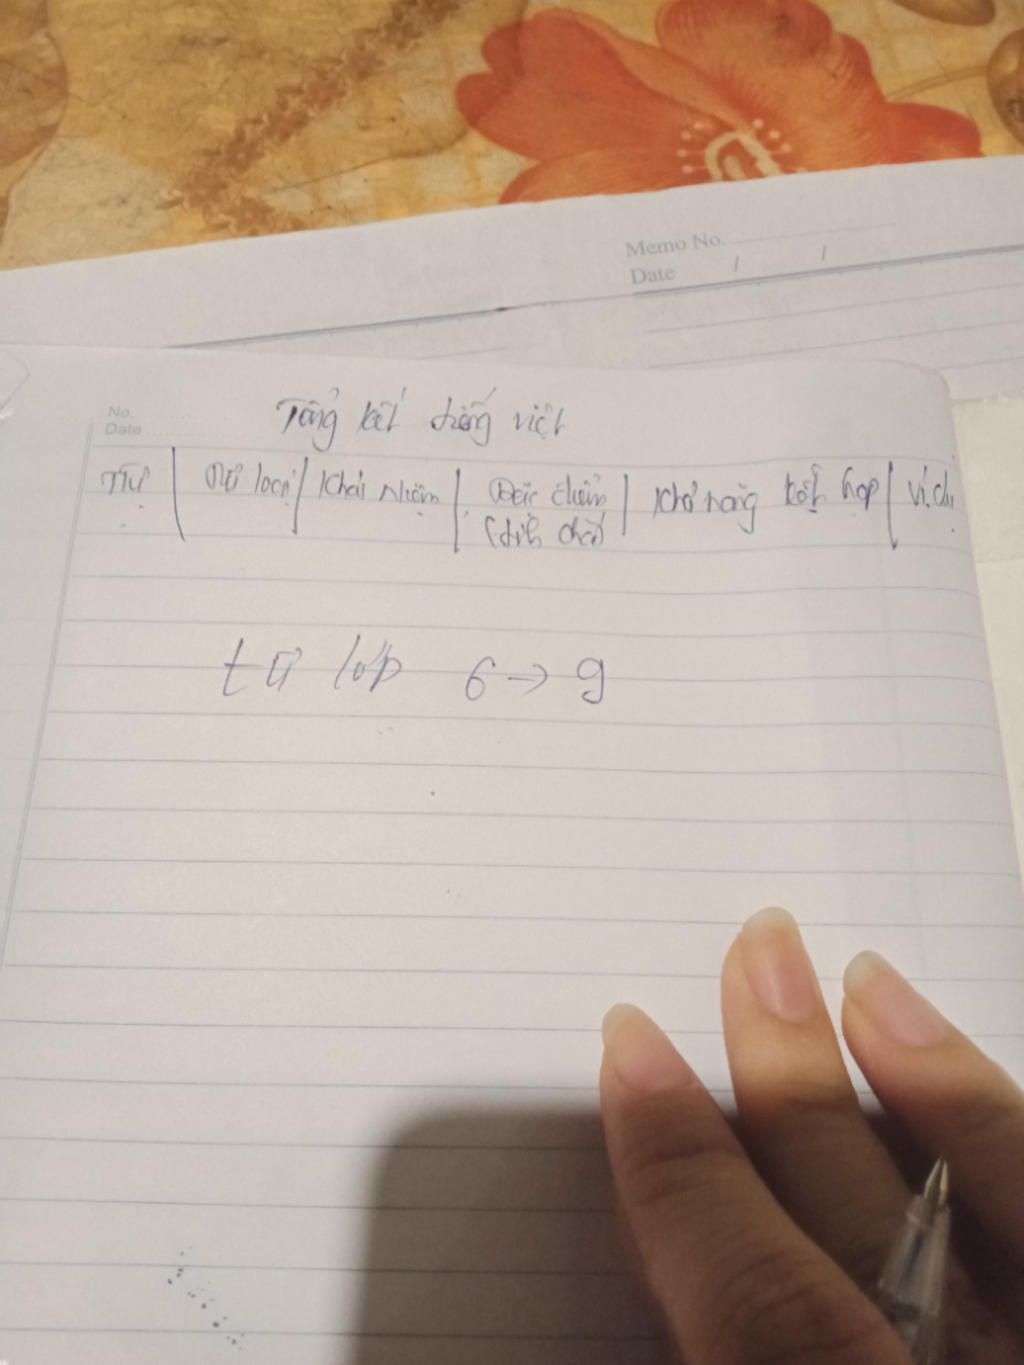 Memo No.
Date / /
No.
Date
Tổng kết tiếng việt
TTự | Từ loại | Khái niệm | Đặc điểm | Khả năng kết hợp | Ví dụ
(tính chất)
từ lớp 6 → 9